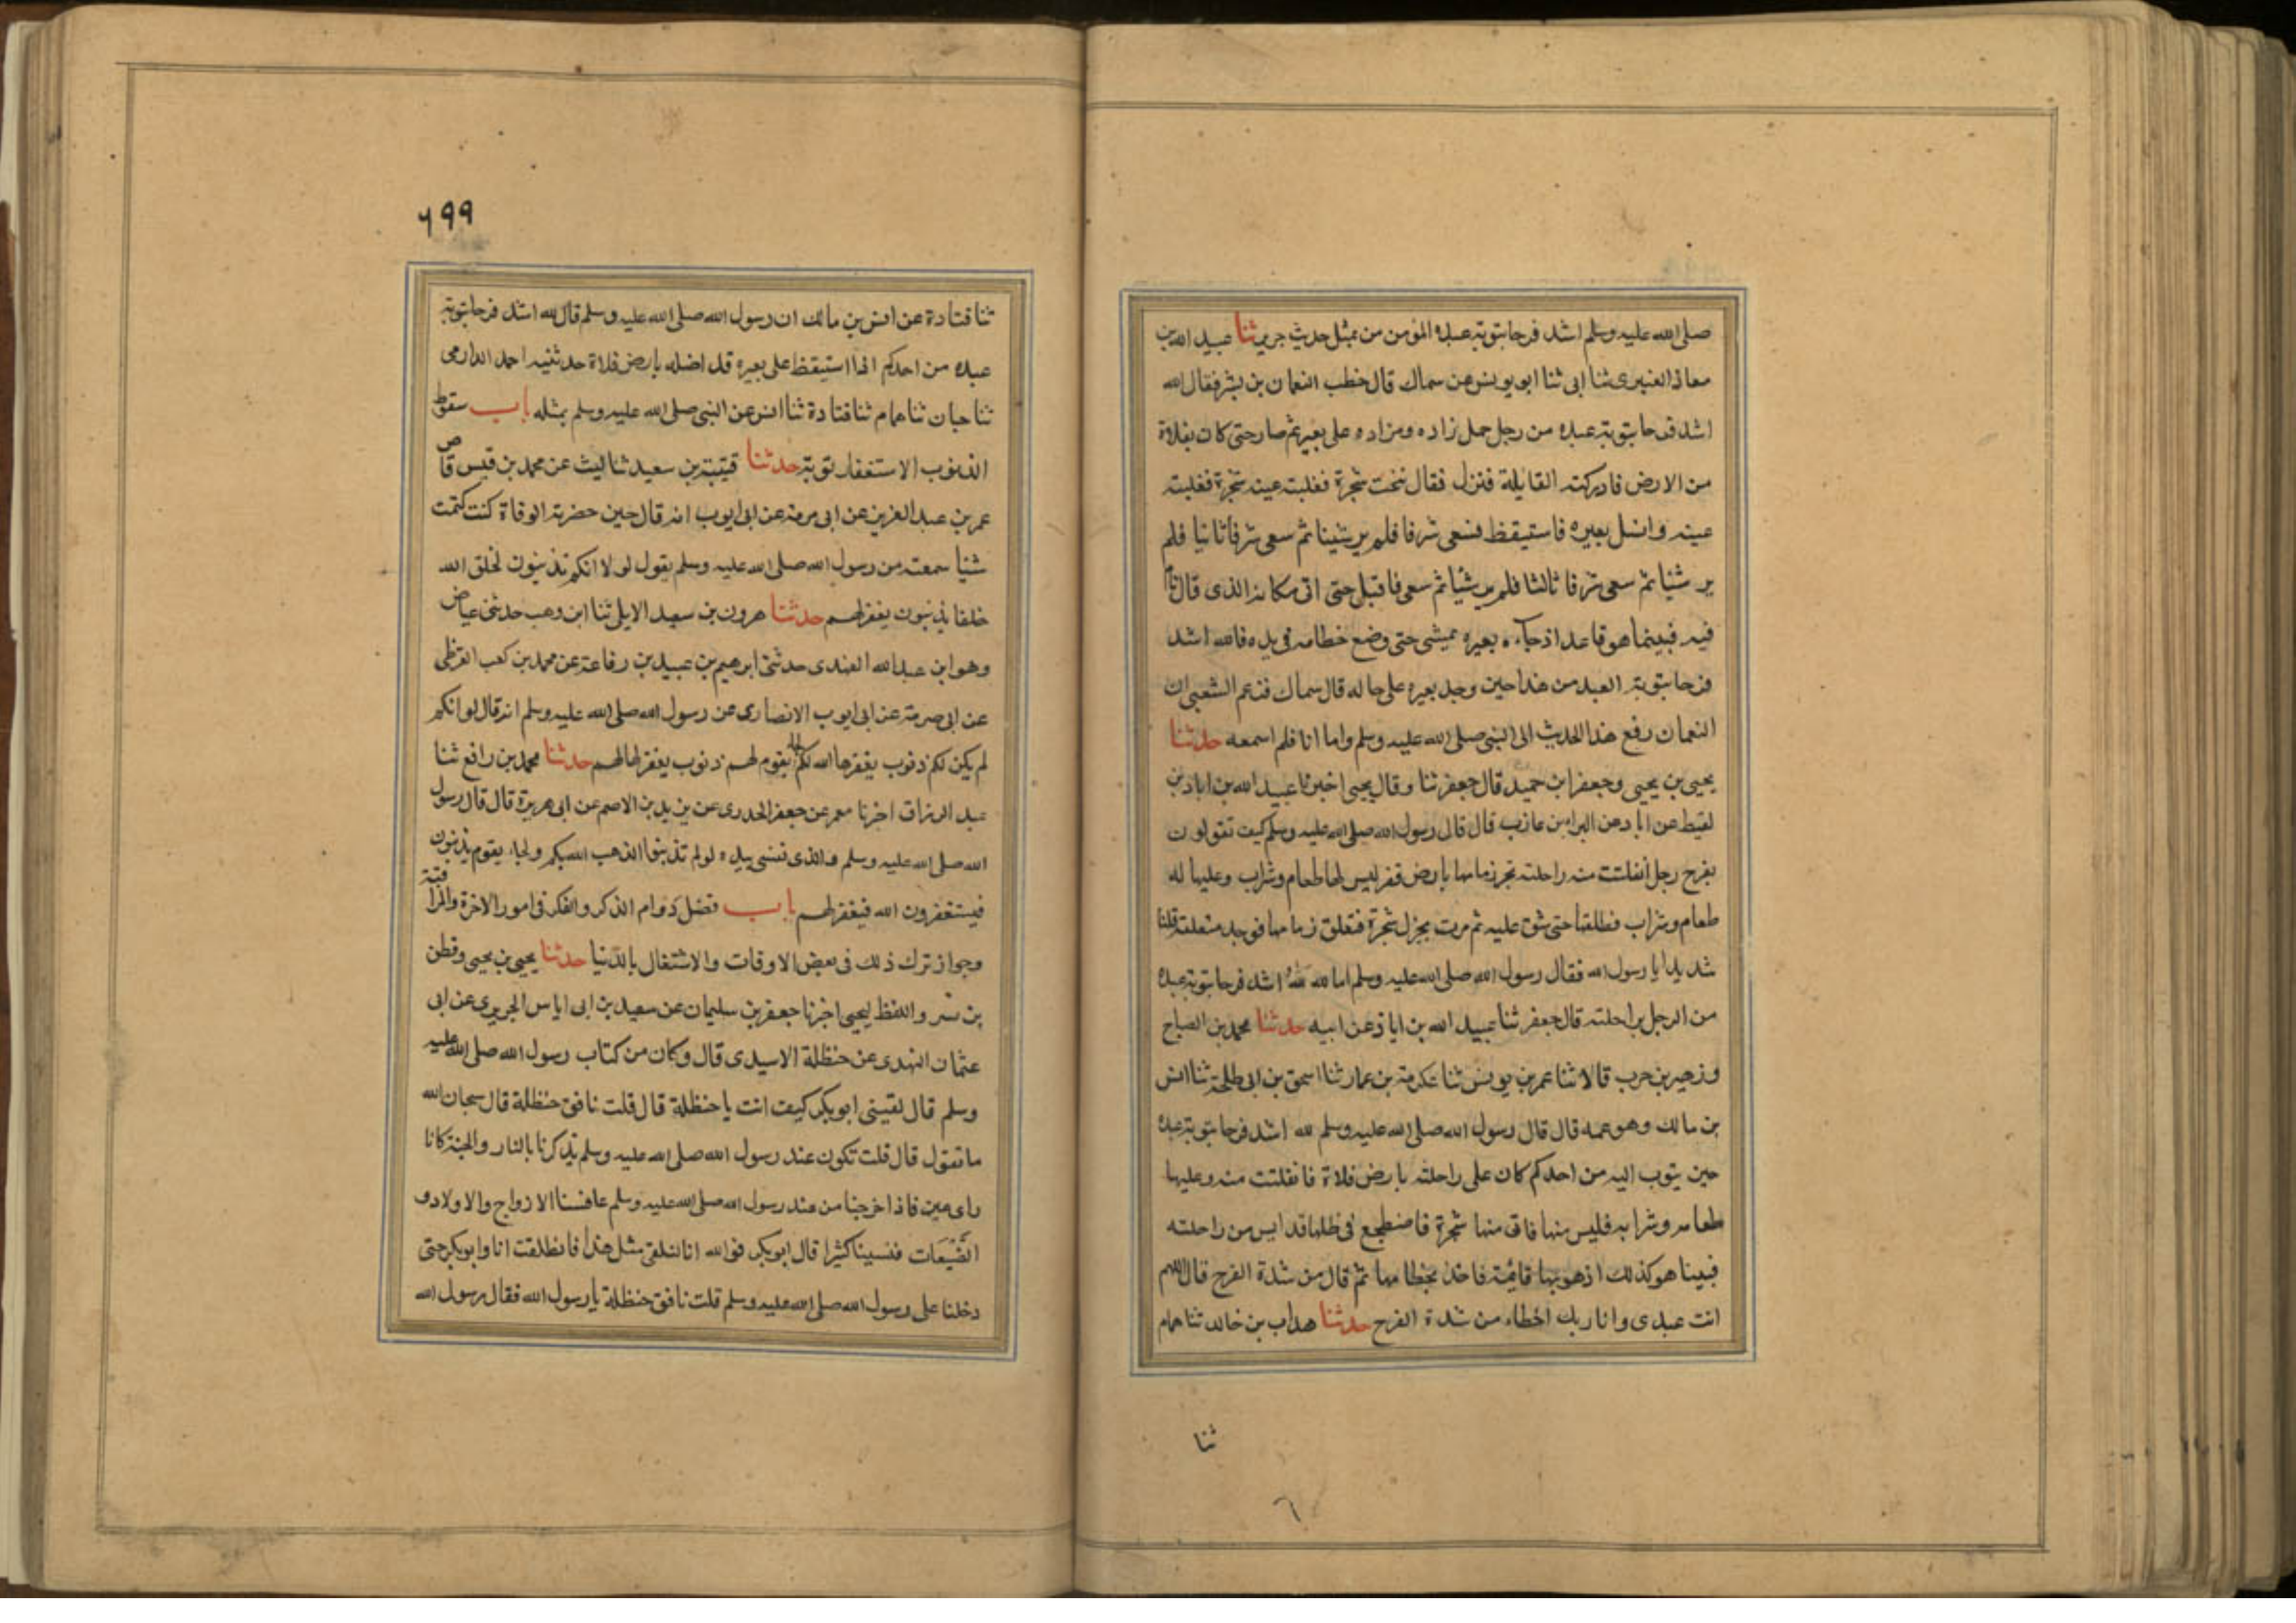 صلى الله عليه وسلم اشد فرحا بتوبة عبده المؤمن من بمثل حديث جرير ثنا عبيد الله بن
معاذ العنبرى ثنا ابى ثنا ابو يونس عن سماك قال خطب النعمان بن بشر فقال لله
اشد فرحا بتوبة عبده من رجل حمل زاده ومزاده على بعير ثم صار حتى كان بفلاة
من الارض فادركته القايلة فنزل فقال تحت شجرة فغلبته عينه شجرة فغلبته
عينه وانسل بعيره فاستيقظ فسعى شرفا فلم ير شيئا ثم سعى شرفا ثانيا فلم
ير شيئا ثم سعى شرفا ثالثا فلم ير شيئا ثم سعى فاقبل حتى اتى مكانه الذى قال
فيه فبينما هو قاعد اذ جاءه بعيره يمشى حتى وضع خطامه فى يده فالله اشد
فرحا بتوبة العبد من هذا حين وجد بعيره على حاله قال سماك فزعم الشعبى ان
النعمان رفع هذا الحديث الى النبى صلى الله عليه وسلم واما انا فلم اسمعه حدثنا
يحيى بن يحيى وجعفر ابن حميد قال جعفر ثنا وقال يحيى اخبرنا عبيد الله بن اياد بن
لقيط عن اياد عن البراء بن عازب قال قال رسول الله صلى الله عليه وسلم كيف تقولون
بفرح رجل انفلتت منه راحلته تجر زمامها بارض قفر ليس لها طعام وشراب وعليها له
طعام وشراب فطلقها حتى شق عليه ثم مرت بجزل شجرة فتعلق زمامها فوجد متعلقة قلنا
شديدا يا رسول الله فقال رسول الله صلى الله عليه وسلم اما لله اشد فرحا بتوبة عبده
من الرجل براحلته قال جعفر ثنا عبيد الله بن اياد عن ابيه حدثنا محمد بن الصباح
وزهير بن حرب قالا ثنا عمر بن يونس ثنا عكرمة بن عمار ثنا اسحق بن ابى طلحة ثنا انس
بن مالك وهو عمه قال قال رسول الله صلى الله عليه وسلم لله اشد فرحا بتوبة عبده
حين يتوب اليه من احدكم كان على راحلته بارض فلاة فانفلتت منه وعليها
طعامه وشرابه فليس منها فاتى منها شجرة فاضطجع فى ظلها قد ايس من راحلته
فبينا هو كذلك اذ هو بها قائمة فاخذ بخطامها ثم قال من شدة الفرح قال اللهم
انت عبدى وانا ربك اخطاء من شدة الفرح حدثنا هداب بن خالد ثنا همام
ثنا
٦٩٩
ثنا قتادة عن انس بن مالك ان رسول الله صلى الله عليه وسلم قال لله اشد فرحا بتوبة
عبده من احدكم اذا استيقظ على بعيره قد اضله بارض فلاة حدثنيه احمد الدارمى
ثنا حبان ثنا همام ثنا قتادة ثنا انس عن النبى صلى الله عليه وسلم بمثله باب سقوط
الذنوب الاستغفار توبة حدثنا قتيبة بن سعيد ثنا ليث عن محمد بن قيس قاص
عمر بن عبد العزيز عن ابى صرمة عن ابى ايوب انه قال حين حضرته الوفاة كنت كتمت
شيئا سمعته من رسول الله صلى الله عليه وسلم يقول لولا انكم تذنبون لخلق الله
خلقا يذنبون يغفر لهم حدثنا هرون بن سعيد الايلى ثنا ابن وهب حدثنى عياض
وهو ابن عبد الله الفندى حدثنى ابرهيم بن عبيد بن رفاعة عن محمد بن كعب القرظى
عن ابى صرمة عن ابى ايوب الانصارى عن رسول الله صلى الله عليه وسلم انه قال لو انكم
لم يكن لكم ذنوب يغفرها الله لكم بقوم لهم ذنوب يغفر لها لهم حدثنا محمد بن رافع ثنا
عبد الرزاق اخبرنا معمر عن جعفر الجدرى عن يزيد بن الاصم عن ابى هريرة قال قال رسول
الله صلى الله عليه وسلم والذى نفسى بيده لو لم تذنبوا الذهب الله بكم ولجاء بقوم يذنبون
فيستغفرون الله فيغفر لهم باب فضل دوام الذكر والفكر فى امور الاخرة والمراقبة
وجواز ترك ذلك فى بعض الاوقات والاشتغال بالدنيا حدثنا يحيى بن يحيى وقطن
بن نسر واللفظ ليحيى اخبرنا جعفر بن سليمان عن سعيد بن ابى اياس الجريرى عن ابى
عثمان النهدى عن حنظلة الاسيدى قال وكان من كتاب رسول الله صلى الله عليه
وسلم قال لقينى ابو بكر كيف انت يا حنظلة قال قلت نافق حنظلة قال سبحان الله
ما تقول قال قلت تكون عند رسول الله صلى الله عليه وسلم يذكرنا بالنار والجنة كانا
راى عين فاذا خرجنا من عند رسول الله صلى الله عليه وسلم عافسنا الازواج والاولاد و
الضيعات فنسينا كثيرا قال ابو بكر فوالله انا لنلقى مثل هذا فانطلقت انا وابو بكر حتى
دخلنا على رسول الله صلى الله عليه وسلم قلت نافق حنظلة يا رسول الله فقال رسول الله